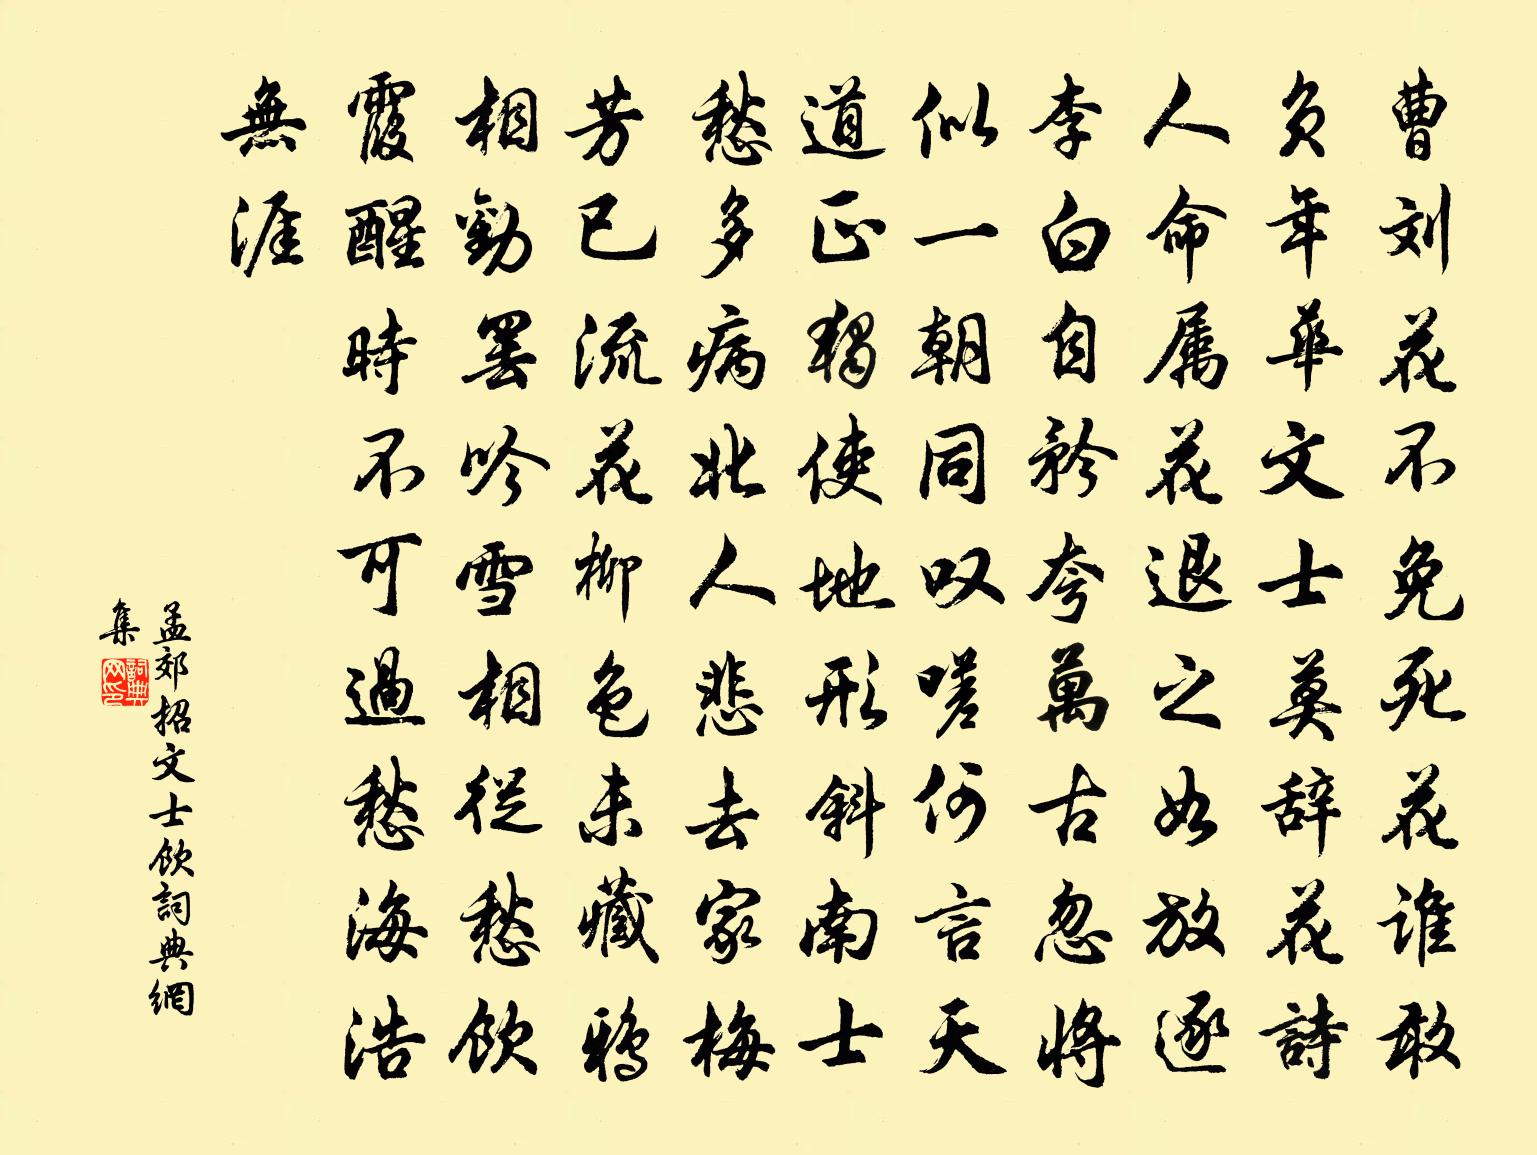 曹刘花不免死花谁敢
负年华文士莫辞花詩
人命属花退之如放逐
李白自矜夸萬古忽将
似一朝同叹嗟何言天
道正獨使地形斜南士
愁多病北人悲去家梅
芳已流花柳色未藏鸦
相勸罢吟雪相從愁飲
霞醒時不可過愁海浩
無涯
孟郊招文士飲詞典網
集
詞典
网印